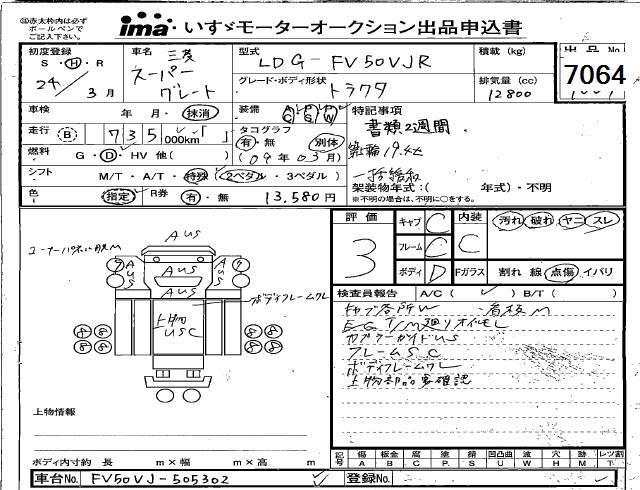 ◎赤太枠内は必ず
ボールペンで
ご記入下さい。
ima いすゞモーターオークション出品申込書
初度登録
S・H・R
24 3月
車名 三菱
スーパー
グレート
型式
LDG-FV50VJR
グレード・ボディ形状
トラクタ
積載 (kg)
排気量 (cc)
12800
出品No.
7064
車検 年 月・抹消
装備 A/C P/S P/W
特記事項
書類2週間
走行 B 735 000km
タコグラフ
有・無 別体
(09年03月)
燃料 G・D・HV 他( )
シフト M/T・A/T・特殊 (2ペダル・3ペダル)
架装物年式:( 年式)・不明
※不明の場合は、不明に○をする。
色 指定 R券 有・無 13,580円
評価
3
キャブ C
フレーム C
ボディ D
内装 C
汚れ 破れ ヤニ スレ
Fガラス 割れ 線 点傷 イバリ
検査員報告 A/C( ) B/T( )
フレームSC
ボディフレームクレ
上物部品要確認
AUS
AUS
AUS
AUS
AUS
ボディフレームクレ
上物
USC
8 8 8 8
8 8 8 8
上物情報
ボディ内寸約 長 m×幅 m×高 m
記号 傷 A 板金 B 腐 C 塗 P 錆 S 凹凸曲 U 波 W 穴 H 跡 M レツ割 T
車台No. FV50VJ-505302
登録No.